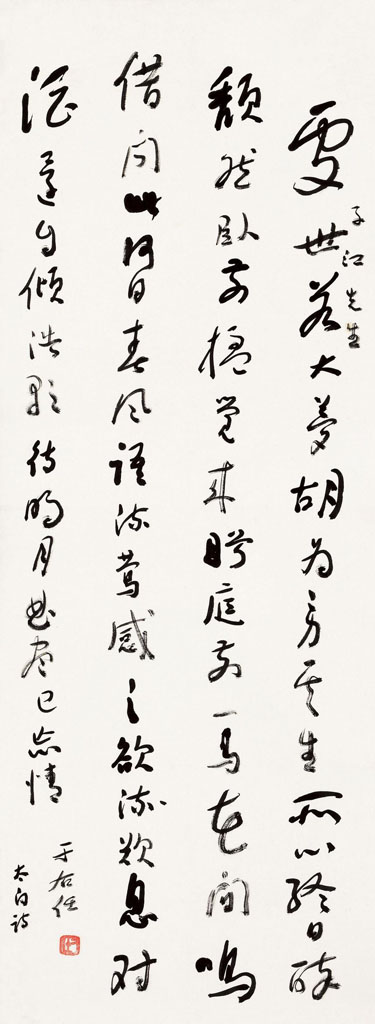 處世若大夢胡為勞其生所以終日醉
子江先生
頹然臥前楹覺來眄庭前一鳥花間鳴
借問此何日春風語流鶯感之欲流歎息对
酒還自傾浩歌待明月曲盡已忘情
太白詩
于右任